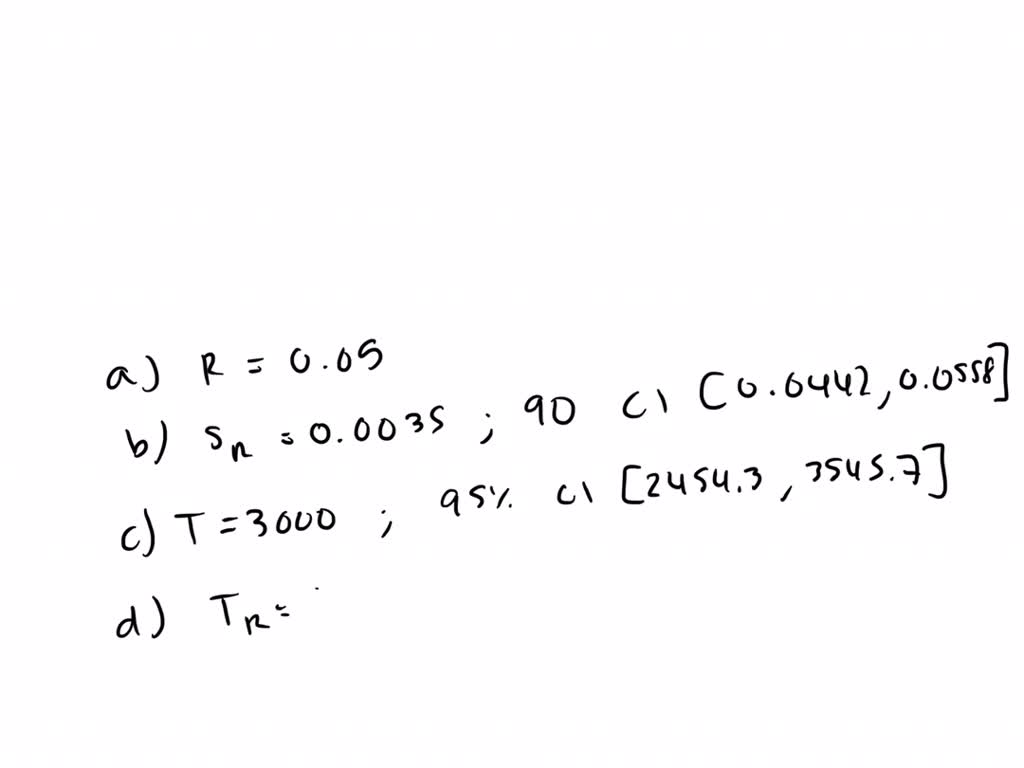 a) R = 0.05
b) SR = 0.0035 ; 90 CI [0.0442, 0.0558]
c) T = 3000 ; 95% CI [2454.3, 3545.7]
d) TR =